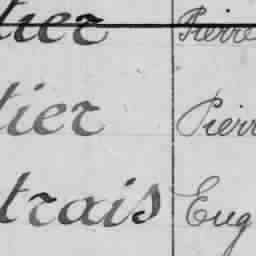 tier Pierre
tier Pierr
trais Eug